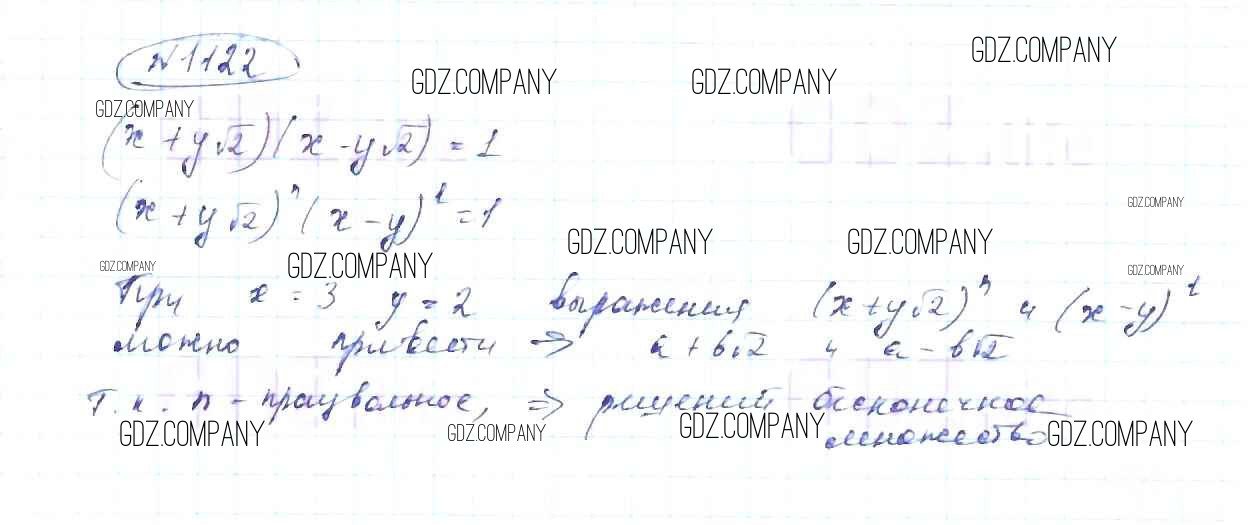 №1122
GDZ.COMPANY GDZ.COMPANY GDZ.COMPANY
GDZ.COMPANY
(x + y√2)(x - y√2) = 1
(x + y√2)ⁿ (x - y)¹ = 1
GDZ.COMPANY
GDZ.COMPANY GDZ.COMPANY
GDZ.COMPANY GDZ.COMPANY GDZ.COMPANY
При x = 3 y = 2 выражения (x + y√2)ⁿ и (x - y)¹
можно привести => a + b√2 и a - b√2
т.к. n - произвольное, => решений бесконечное
множество
GDZ.COMPANY GDZ.COMPANY GDZ.COMPANY GDZ.COMPANY